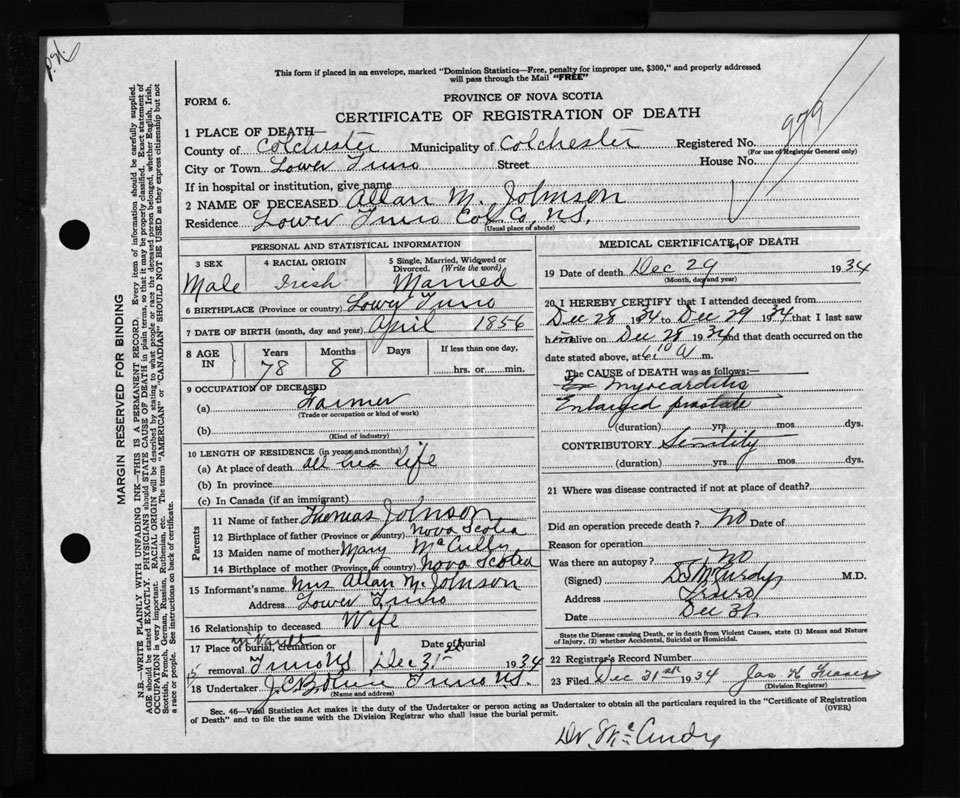 This form if placed in an envelope, marked "Dominion Statistics—Free, penalty for improper use, $300," and properly addressed
will pass through the Mail "FREE"
FORM 6.
PROVINCE OF NOVA SCOTIA
CERTIFICATE OF REGISTRATION OF DEATH
979
1 PLACE OF DEATH—
County of Colchester Municipality of Colchester Registered No.
(For use of Registrar General only)
City or Town Lower Truro Street House No.
If in hospital or institution, give name
2 NAME OF DECEASED Allan M. Johnson
Residence Lower Truro Col. Co. N.S.
(Usual place of abode)
PERSONAL AND STATISTICAL INFORMATION
3 SEX Male
4 RACIAL ORIGIN Irish
5 Single, Married, Widowed or Divorced. (Write the word) Married
6 BIRTHPLACE (Province or country) Lower Truro
7 DATE OF BIRTH (month, day and year) April 1856
8 AGE IN Years 78 Months 8 Days If less than one day, hrs. or min.
9 OCCUPATION OF DECEASED
(a) Farmer
(Trade or occupation or kind of work)
(b)
(Kind of industry)
10 LENGTH OF RESIDENCE (in years and months)
(a) At place of death all his life
(b) In province
(c) In Canada (if an immigrant)
Parents
11 Name of father Thomas Johnson
12 Birthplace of father (Province or country) Nova Scotia
13 Maiden name of mother Mary McCully
14 Birthplace of mother (Province or country) Nova Scotia
15 Informant's name Mrs Allan M. Johnson
Address Lower Truro
16 Relationship to deceased Wife
17 Place of burial, cremation or removal in Vault Truro NS Date of burial Dec 31st 1934
18 Undertaker Truro N.S.
(Name and address)
MEDICAL CERTIFICATE OF DEATH
19 Date of death Dec 29 1934
(Month, day and year)
20 I HEREBY CERTIFY that I attended deceased from
Dec 28 1934 to Dec 29 1934 that I last saw
him alive on Dec 28 1934 and that death occurred on the
date stated above, at 6.10 a m.
The CAUSE OF DEATH was as follows:—
Myocarditis
Enlarged prostate
(duration) yrs. mos. dys.
CONTRIBUTORY Senility
(duration) yrs. mos. dys.
21 Where was disease contracted if not at place of death?
Did an operation precede death? no Date of
Reason for operation
Was there an autopsy? no
(Signed) McCurdy M.D.
Address Truro
Date Dec 31
State the Disease causing Death, or in death from Violent Causes, state (1) Means and Nature
of Injury, (2) whether Accidental, Suicidal or Homicidal.
22 Registrar's Record Number
23 Filed Dec 31st 1934 Jas
(Division Registrar)
Sec. 46—Vital Statistics Act makes it the duty of the Undertaker or person acting as Undertaker to obtain all the particulars required in the "Certificate of Registration
of Death" and to file the same with the Division Registrar who shall issue the burial permit.
(OVER)
Dr. McCurdy
MARGIN RESERVED FOR BINDING
N.B.—WRITE PLAINLY WITH UNFADING INK—THIS IS A PERMANENT RECORD. Every item of information should be carefully supplied.
AGE should be stated EXACTLY. PHYSICIANS should STATE CAUSE OF DEATH in plain terms, so that it may be properly classified. Exact statement of
OCCUPATION is very important. RACIAL ORIGIN will be described by stating to what people or race the deceased person belonged, whether English, Irish,
Scottish, French, German, Russian, Ruthenian, etc. The terms "AMERICAN" or "CANADIAN" SHOULD NOT BE USED as they express citizenship but not
a race or people. See instructions on back of certificate.